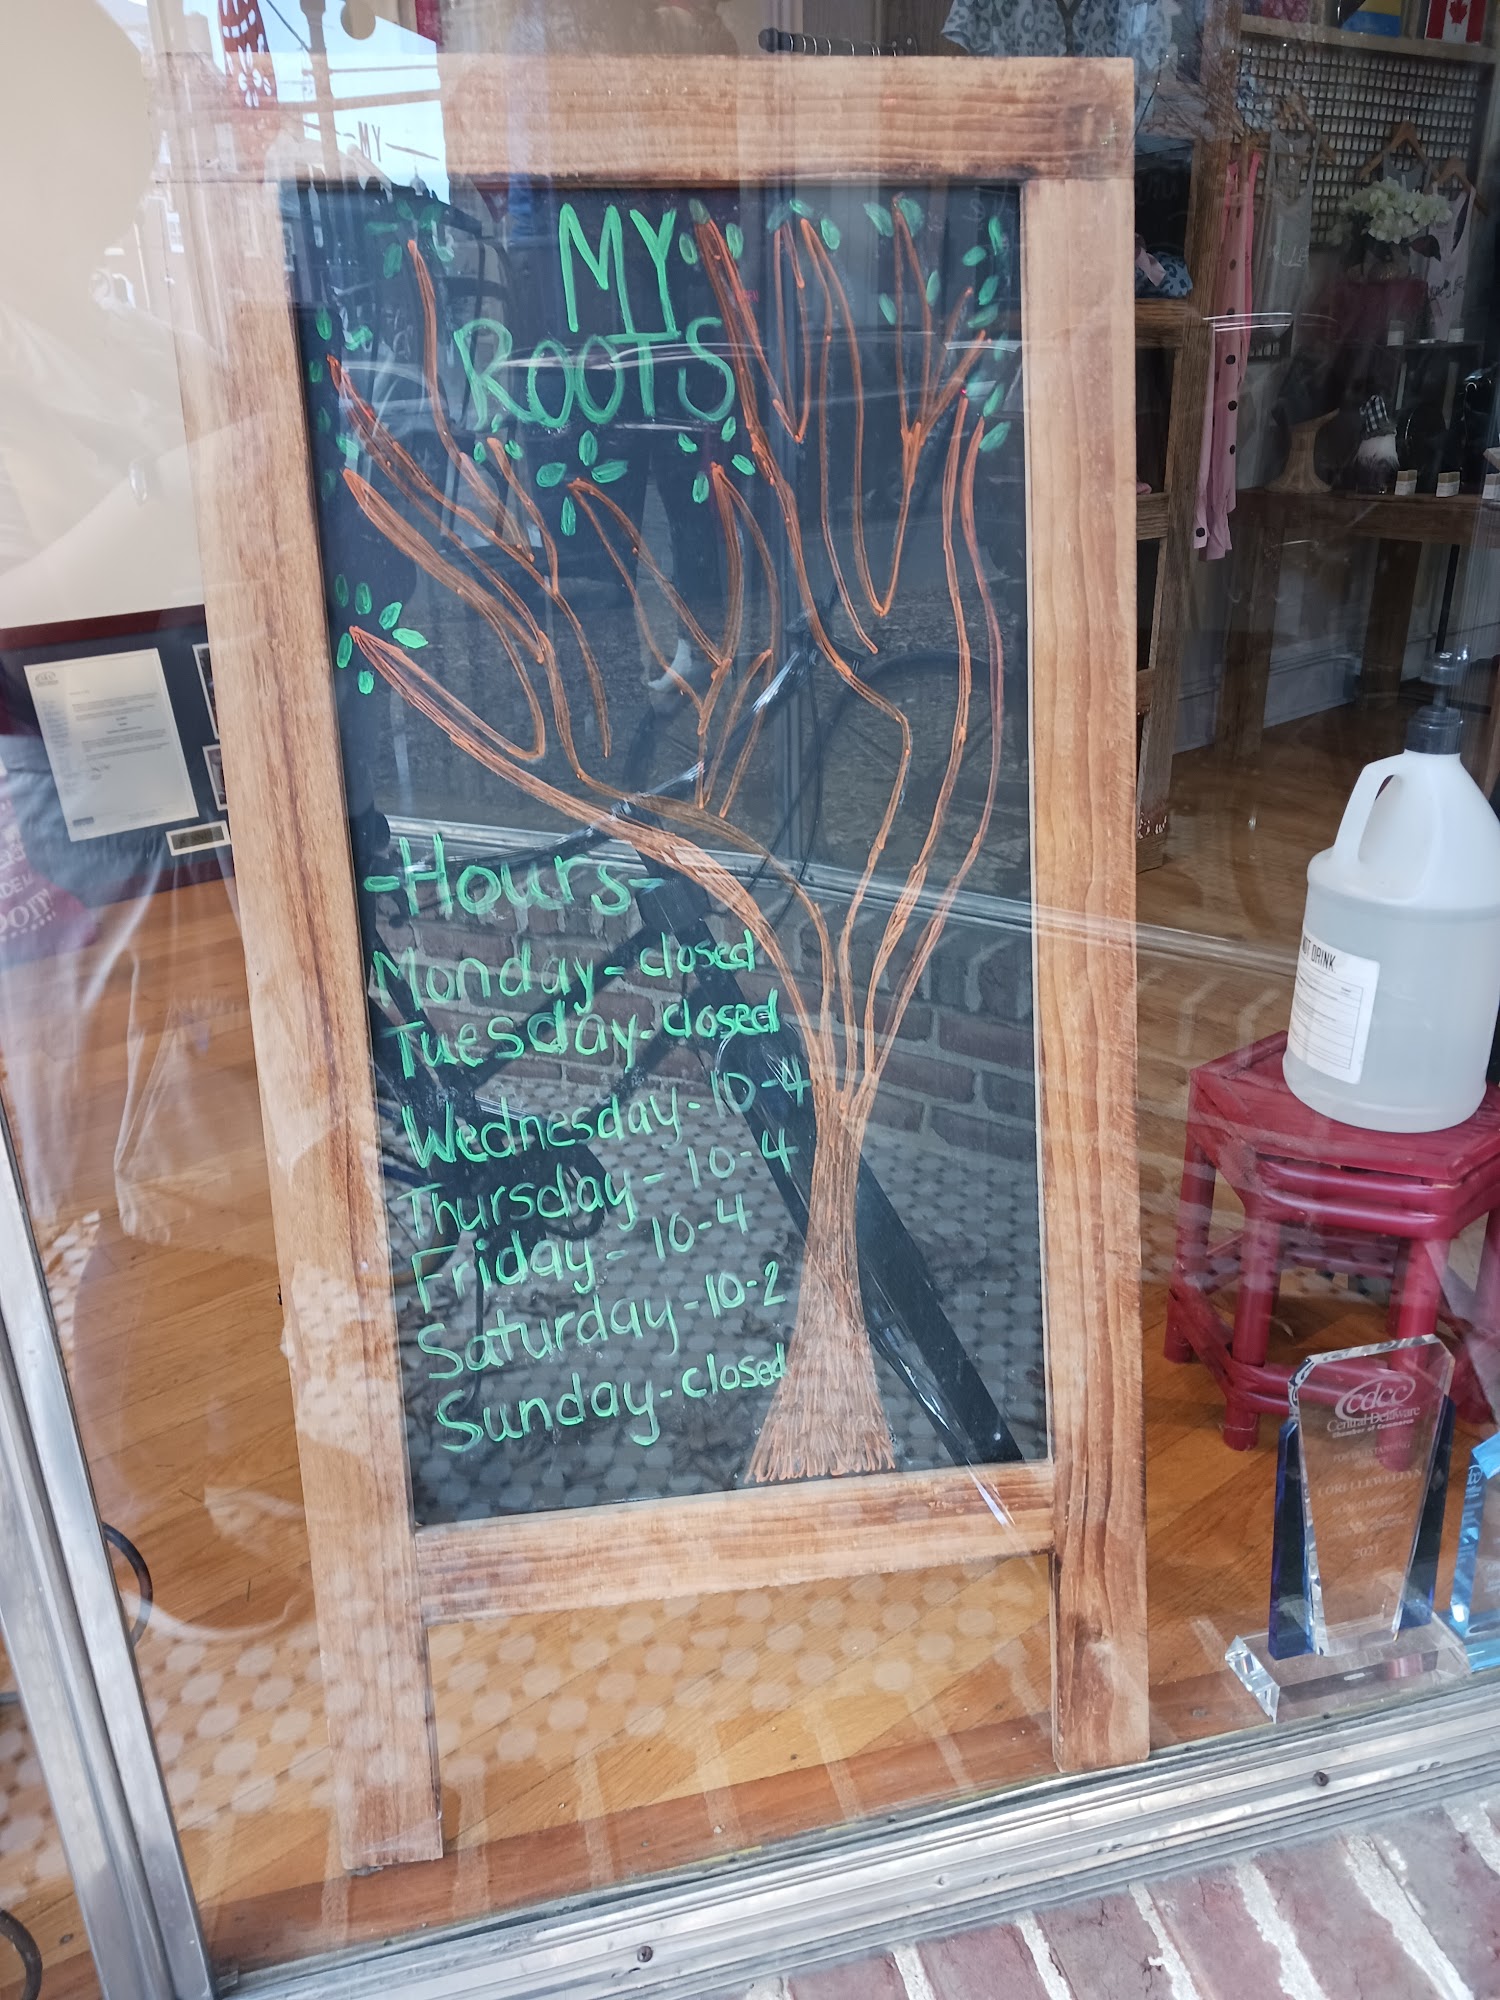 MY
ROOTS
-Hours-
Monday - closed
Tuesday - closed
Wednesday - 10-4
Thursday - 10-4
Friday - 10-4
Saturday - 10-2
Sunday - closed
NOT DRINK.
cdcc
Central Delaware
Chamber of Commerce
LORI LLEWELLYN
2021
MY